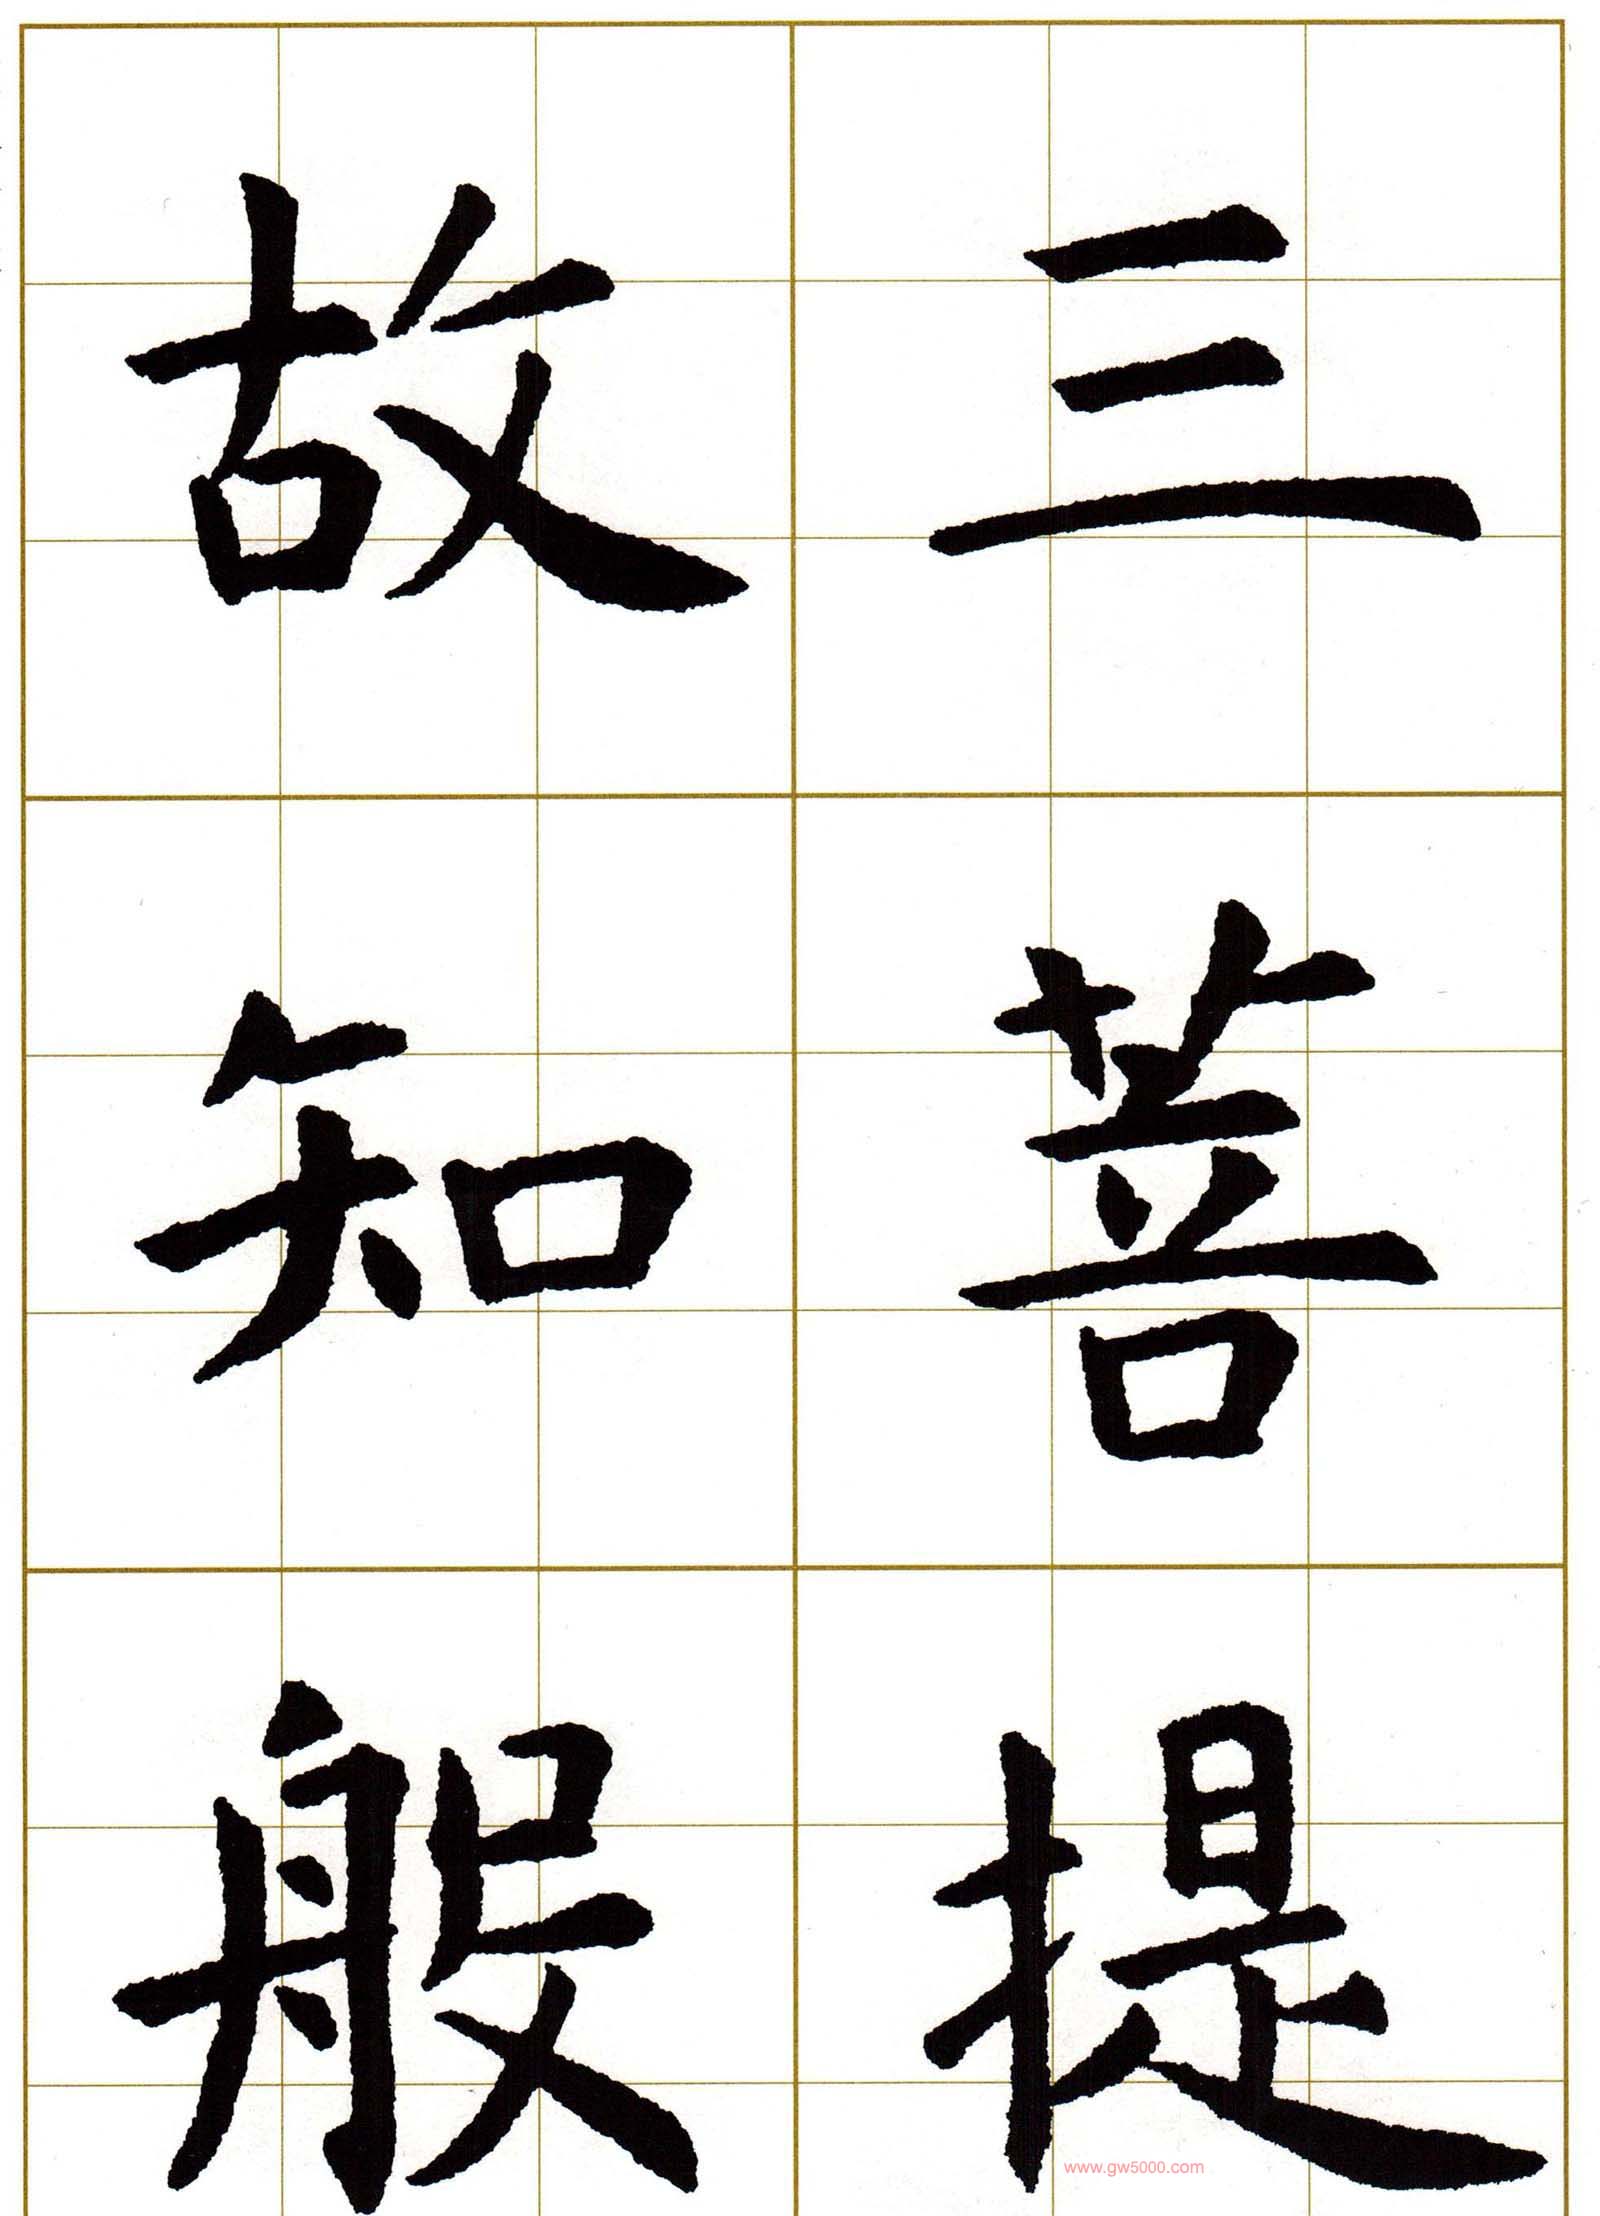 三菩提
故知般
www.gw5000.com